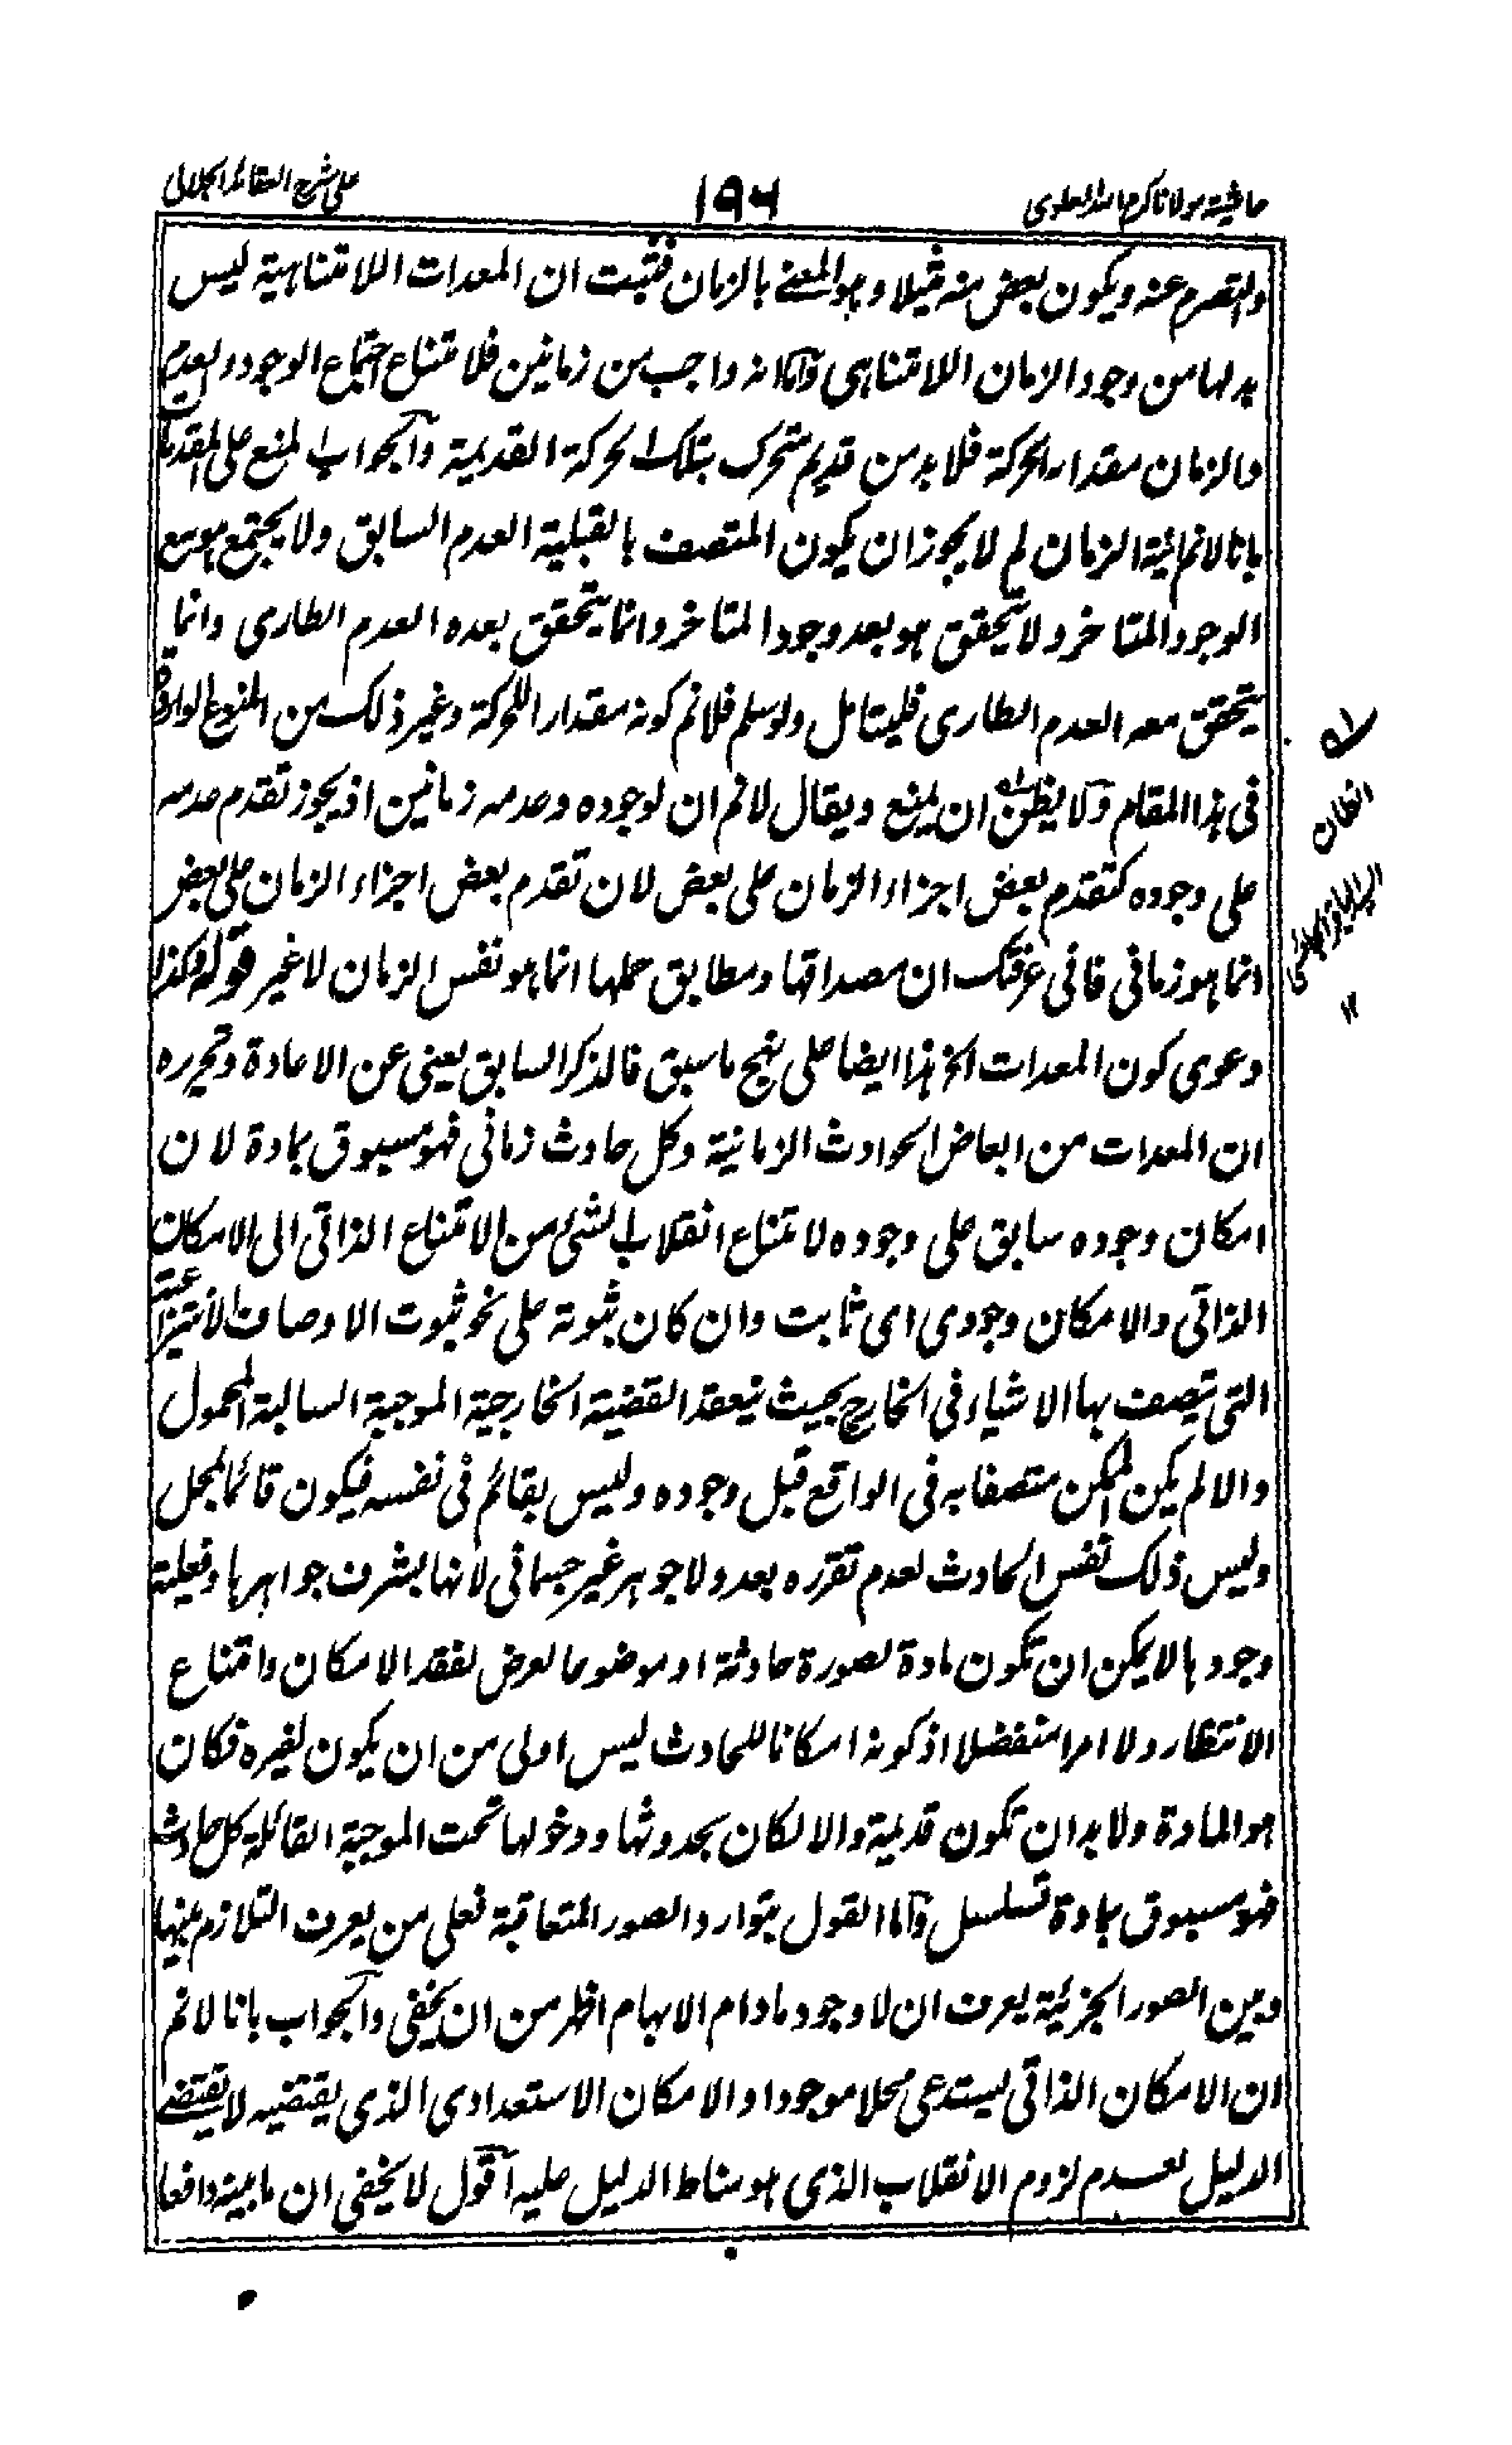 حاشية مولانا كرم الله العلوى
١٩٦
على شرح العقائد الجلالى
والتصرم عنه ويكون بعض منه قبيلا وهو المعنى بالزمان فثبت ان المعدات اللامتناهية ليس
بد لها من وجود الزمان اللامتناهى واما انه واجب من زمانين فلامتناع اجتماع الوجود والعدم
والزمان مقدار الحركة فلابد من قديم متحرك بتلك الحركة القديمة والجواب المنع على المقدمات
بانا لانم انية الزمان لم لا يجوز ان يكون المتصف بالقبلية العدم السابق ولا يجتمع هو مع
الوجود المتاخر ولا يتحقق هو بعد وجود المتاخر وانما يتحقق بعده العدم الطارى وانما
يتحقق معه العدم الطارى فليتامل ولو سلم فلانم كونه مقدار اللحركة وغير ذلك من المنوع الواردة
فى هذا المقام ولا يظن ان يمنع ويقال لانم ان لوجوده وعدمه زمانين اذ يجوز تقدم عدمه
على وجوده كتقدم بعض اجزاء الزمان على بعض لان تقدم بعض اجزاء الزمان على بعض
انما هو زمانى فانى عرفتك ان مصداقها ومطابق حملها انما هو نفس الزمان لا غير قوله وكذا
دعوى كون المعدات الخ هذا ايضا على نهج ما سبق فالذكر السابق يغنى عن الاعادة وتحريره
ان المعدات من ابعاض الحوادث الزمانية وكل حادث زمانى فهو مسبوق بمادة لان
امكان وجوده سابق على وجوده لامتناع انقلاب الشئ من الامتناع الذاتى الى الامكان
الذاتى والامكان وجودى اى ثابت وان كان ثبوته على نحو ثبوت الاوصاف الانتزاعية
التى تتصف بها الاشياء فى الخارج بحيث ينعقد القضية الخارجية الموجبة السالبة المحمول
والا لم يكن الممكن متصفا به فى الواقع قبل وجوده وليس بقائم فى نفسه فيكون قائما بمحل
وليس ذلك نفس الحادث لعدم تقرره بعد ولا جوهر غير جسمانى لانها بشرف جواهرها وفعلية
وجودها لا يمكن ان تكون مادة لصورة حادثة او موضوعا لعرض لفقد الامكان وامتناع
الانتظار ولا امرا منفصلا اذ كونه امكانا للحادث ليس اولى من ان يكون لغيره فكان
هو المادة ولابد ان تكون قديمة والا لكان بحدوثها ودخولها تحت الموجبة القائلة كل حادث
فهو مسبوق بمادة تسلسل واما القول بتوارد الصور المتعاقبة فعلى من يعرف التلازم بينها
وبين الصور الجزئية يعرف ان لا وجود مادام الابهام اظهر من ان يخفى والجواب بانا لانم
ان الامكان الذاتى يستدعى محلا موجودا والامكان الاستعدادى الذى يقتضيه لا يقتضى
الدليل لعدم لزوم الانقلاب الذى هو مناط الدليل عليه اقول لا يخفى ان ما بينه دافعا